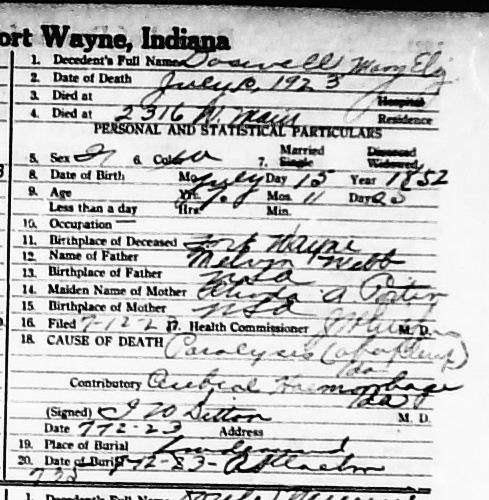 ort Wayne, Indiana
1. Decedent's Full Name Doswell Mary Eliz
2. Date of Death July 8, 1923
3. Died at Hospital
4. Died at 2316 W. Main Residence
PERSONAL AND STATISTICAL PARTICULARS
5. Sex 6. Color W 7. Married Single Divorced Widowed
8. Date of Birth Mo. July Day 15 Year 1852
9. Age Yrs. Mos. 11 Days 23
Less than a day Hrs. Min.
10. Occupation —
11. Birthplace of Deceased Fort Wayne
12. Name of Father Melvin Webb
13. Birthplace of Father USA
14. Maiden Name of Mother A
15. Birthplace of Mother USA
16. Filed 7-12-23 17. Health Commissioner M. D.
18. CAUSE OF DEATH Paralysis
Contributory Cerebral Hemorrhage
(Signed) M. D.
Date 7 12-23 Address
19. Place of Burial Lindenwood
20. Date of Burial
1. Decedent's Full Name